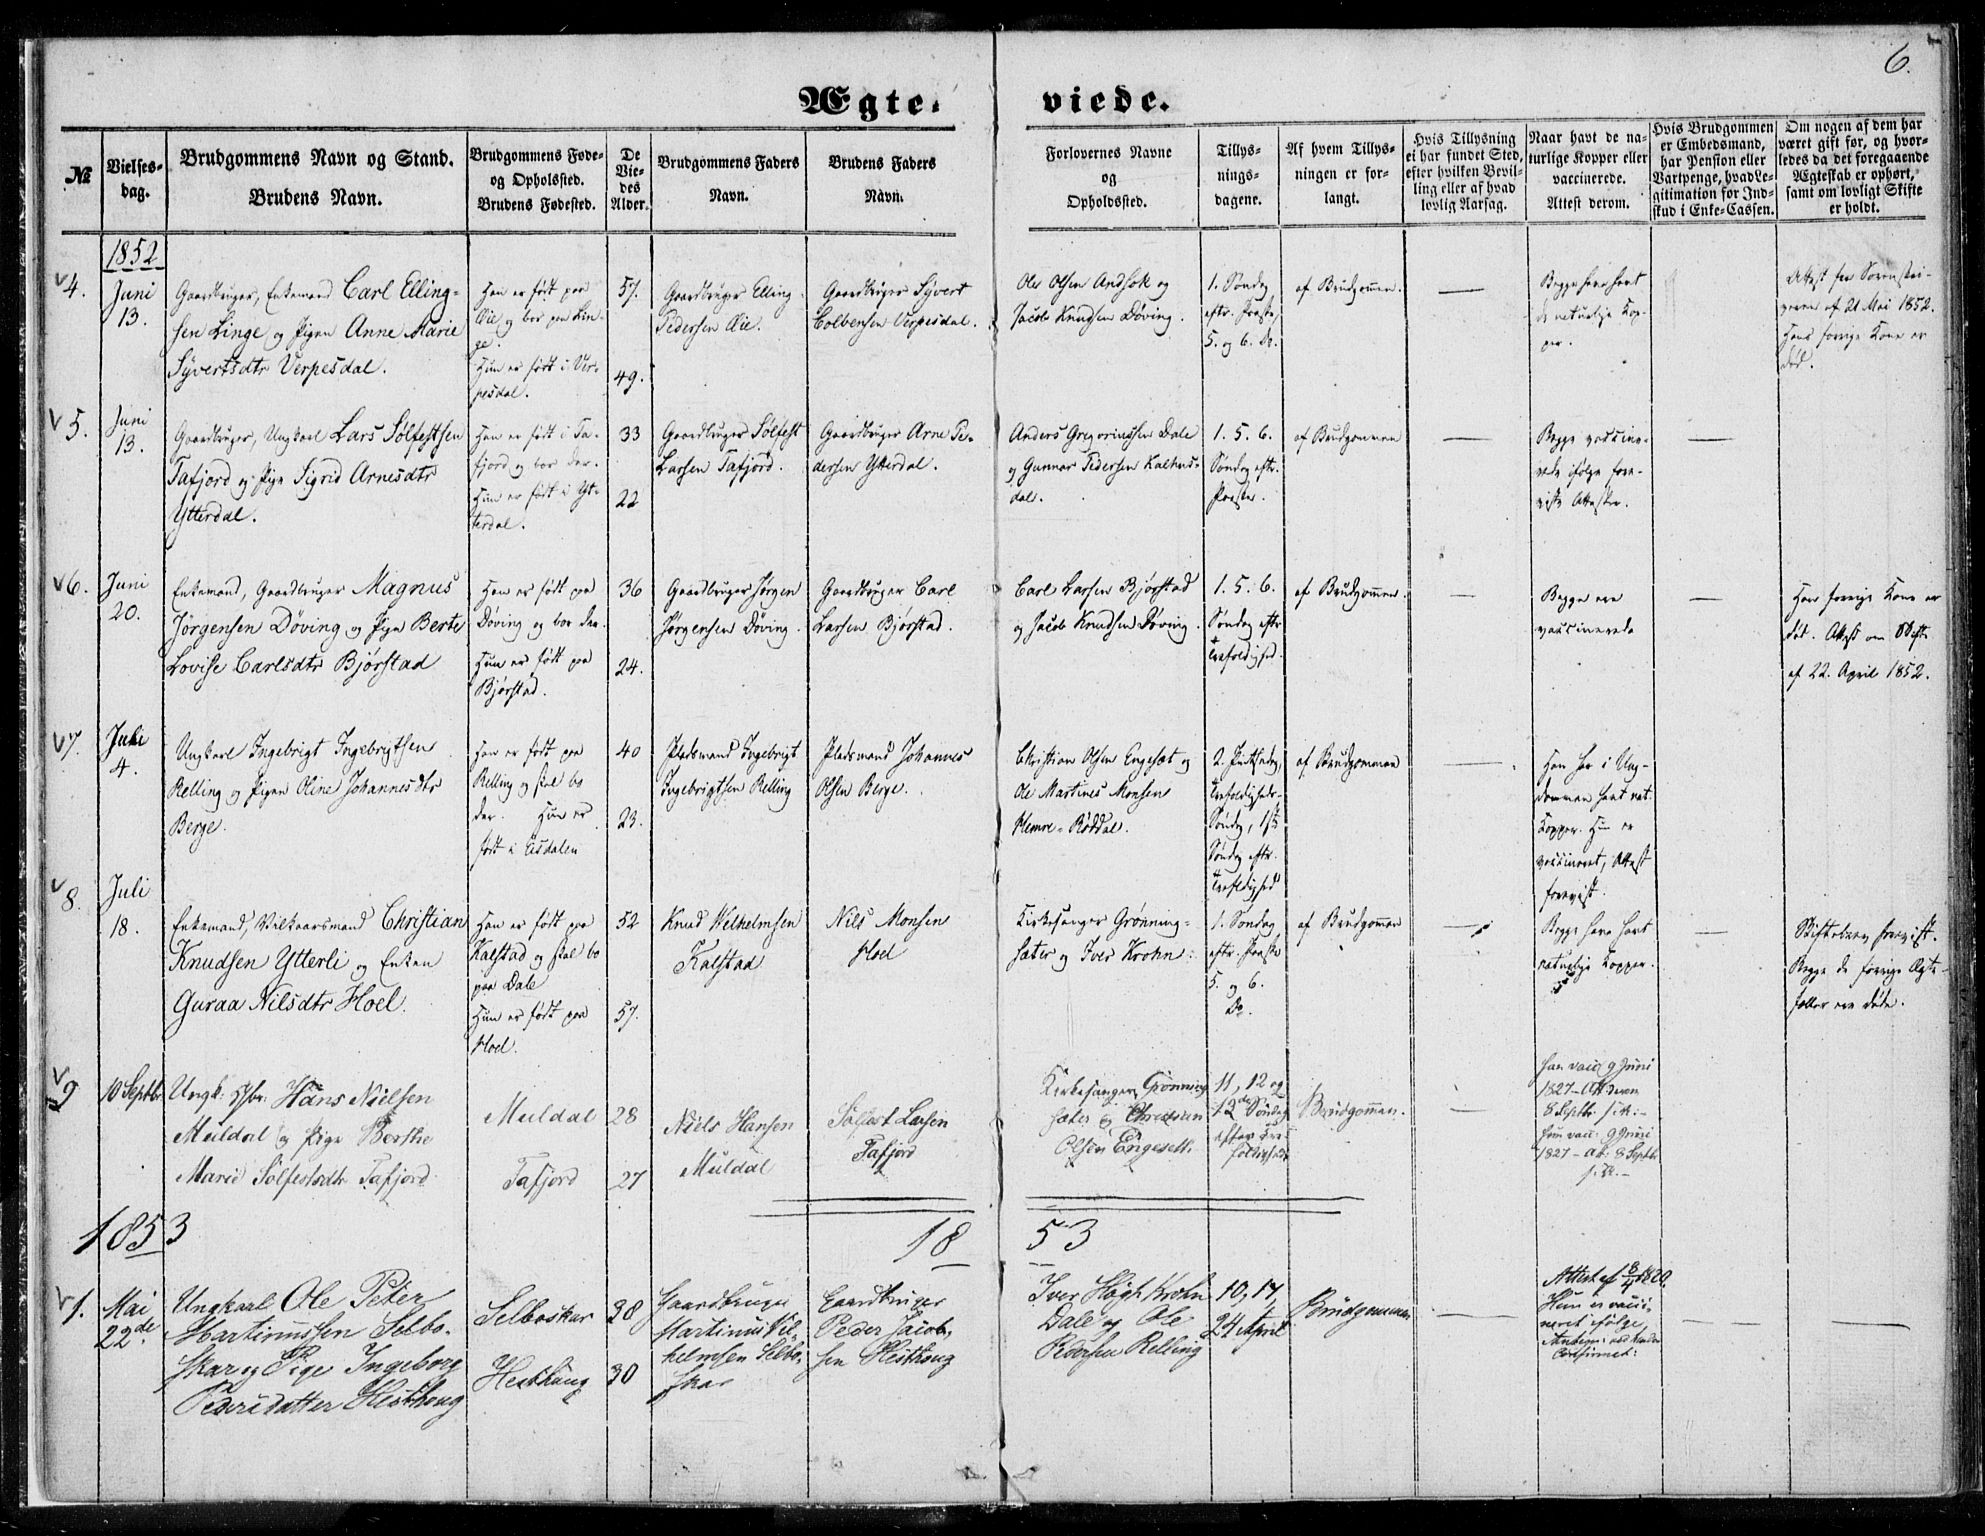 6.
Ægte-
viede.
№
Vielses-
dag.
Brudgommens Navn og Stand.
Brudens Navn.
Brudgommens Føde-
og Opholsted.
Brudens Fødested.
De
Vie-
des
Alder.
Brudgommens Faders
Navn.
Brudens Faders
Navn.
Forlovernes Navne
og
Opholdssted.
Tillys-
nings-
dagene.
Af hvem Tillys-
ningen er for-
langt.
Hvis Tillysning
ei har fundet Sted,
efter hvilken Bevil-
ling eller af hvad
lovlig Aarsag.
Naar havt de na-
turlige Kopper eller
vaccinerede.
Attest derom.
Hvis Brudgommen
er Embedsmand,
har Pension eller
Vartpenge, hvad Le-
gitimation for Ind-
skud i Enke-Cassen.
Om nogen af dem har
været gift før, og hvor-
ledes da det foregaaende
Ægteskab er ophørt,
samt om lovligt Skifte
er holdt.
1852
4.
Juni
13.
Gaardbruger, Enkemand Carl Elling-
sen Linge og Pigen Anne Marie
Syvertsdtr Verpesdal.
Han er født paa
Øie og bor paa Lin-
ge.
Hun er født i Ver-
pesdal.
57.
49.
Gaardbruger Elling
Pedersen Øie.
Gaardbruger Syvert
Colbensen Verpesdal.
Ole Olsen Andsok og
Jacob Knudsen Döving.
1. Søndag
eftr. Paaske,
5. og 6. Do.
af Brudgommen.
Begge have havt
de naturlige Kop-
per.
Attest fra Sorenskri-
veren af 21 Mai 1852.
Hans forrige Kone er
død.
5.
Juni
13.
Gaardbruger, Ungkarl Lars Sölfestsen
Tafjord og Pige Sigrid Arnesdtr
Ytterdal.
Han er født i Ta-
fjord og bor der.
Hun er født i Yt-
terdal.
33
22
Gaardbruger Sölfest
Larsen Tafjord.
Gaardbruger Arne Pe-
dersen Ytterdal.
Anders Gregoriussen Dale
og Gunnar Pedersen Kalhus-
dal.
1. 5. 6.
Søndag eftr.
Paaske.
af Brudgommen
Begge vaccine-
rede ifølge fore-
viste Attester.
6.
Juni
20.
Enkemand, Gaardbruger Magnus
Jörgensen Döving og Pige Berte
Lovise Carlsdtr Björstad
Han er født paa
Døving og bor der.
Hun er født paa
Bjørstad.
36
24.
Gaardbruger Jørgen
Jørgensen Döving.
Gaardbruger Carl
Larsen Bjørstad.
Carl Larsen Bjørstad
og Jacob Knudsen Döving.
1. 5. 6.
Søndag eftr
Trefoldighed.
af Brudgommen.
Begge ere
vaccinerede
Hans forrige Kone er
død. Attest om Skifte
af 22. April 1852.
7.
Juli
4.
Ungkarl Ingebrigt Ingebrigtsen
Relling og Pigen Oline Johannesdtr
Berge.
Han er født paa
Relling og skal bo
der. Hun er
født i Eisdalen
40
23.
Pladsmand Ingebrigt
Ingebrigtsen Relling
Pladsmand Johannes
Olsen Berge.
Christian Olsen Engesæt og
Ole Martines Monsen
Hemre-Röddal.
2. Pintsedag,
Trefoldigheds-
Søndag, 1ste
Søndag eftr.
Trefoldighed
af Brudgommen
Han har i Ung-
dommen havt nat.
Kopper. Hun er
vaccineret, Attest
forevist.
8.
Juli
18.
Enkemand, Vilkaarsmand Christian
Knudsen Ytterli og Enken
Guraa Nilsdtr Hoel.
Han er født paa
Kalstad og skal bo
paa Dale
Hun er født paa
Hoel.
52
57.
Knud Wilhelmsen
Kalstad
Nils Monsen
Hoel
Kirkesanger Grønning-
sæter og Iver Krohn:
1. Søndag
eftr. Paaske
5. og 6.
Do.
af Brudgommen
Begge have havt
naturlige Kopper.
Skiftebrev forevist.
Begge de forrige Ægte-
fæller ere døde.
9
10 Septbr
Ungk: Hans Nielsen
Muldal og Pige Berthe
Marie Sölfestsdtr Tafjord
Muldal
Tafjord
28
27
Niels Hansen
Muldal
Sölfest Larsen
Tafjord
Kirkesanger Grönning-
sæter og Christian
Olsen Engeseth.
11, 12 og
13de Søndag
efter Tre-
foldighed
Brudgommen.
Han vacc 9 Juni
1827 - Att. deraf
8 Septbr
Hun vacc: 9 Juni
1827 - Att: 8 Septbr
1853
18
53
1.
Mai
22de
Ungkarl Ole Peter
Martinussen Selbo-
skar og Pige Ingeborg
Pedersdatter Hesthoug
Selboskar
Hesthoug
28
30
Gaardbruger
Martinus Vil-
helmsen Selbo-
skar
Gaardbruger
Peder Jacob-
sen Hesthoug
Iver Høgh Krohn
Dale og Ole
Relling
10, 17,
24 April
Brudgommen
Attest af 8/4 1820.
Hun er vacci-
neret ifølge,